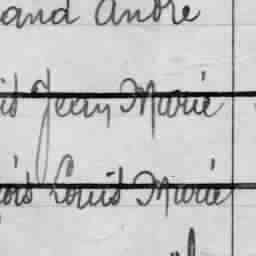 and André
is Jean Marie
çois Louis Marie